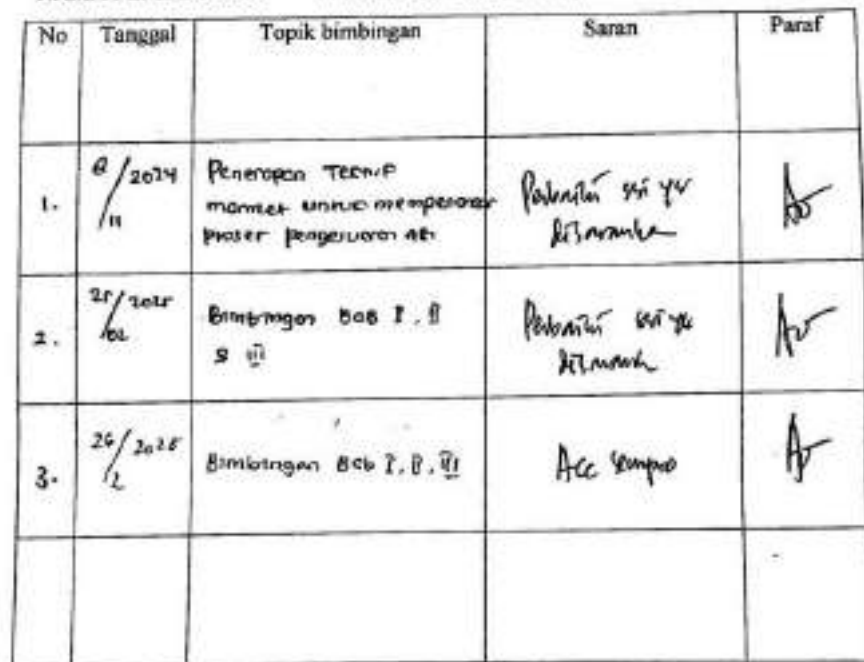 No Tanggal Topik bimbingan Saran Paraf
1. 8/11 2024 Penerapan Teknik
marmet untuk memperlancar
proses pengeluaran ASI
Perbaiki sesuai yg
disarankan
2. 25/02 2025 Bimbingan BAB I, II
& III
Perbaiki sesuai yg
disarankan
3. 26/2 2025 Bimbingan Bab I, II, III Acc sempro